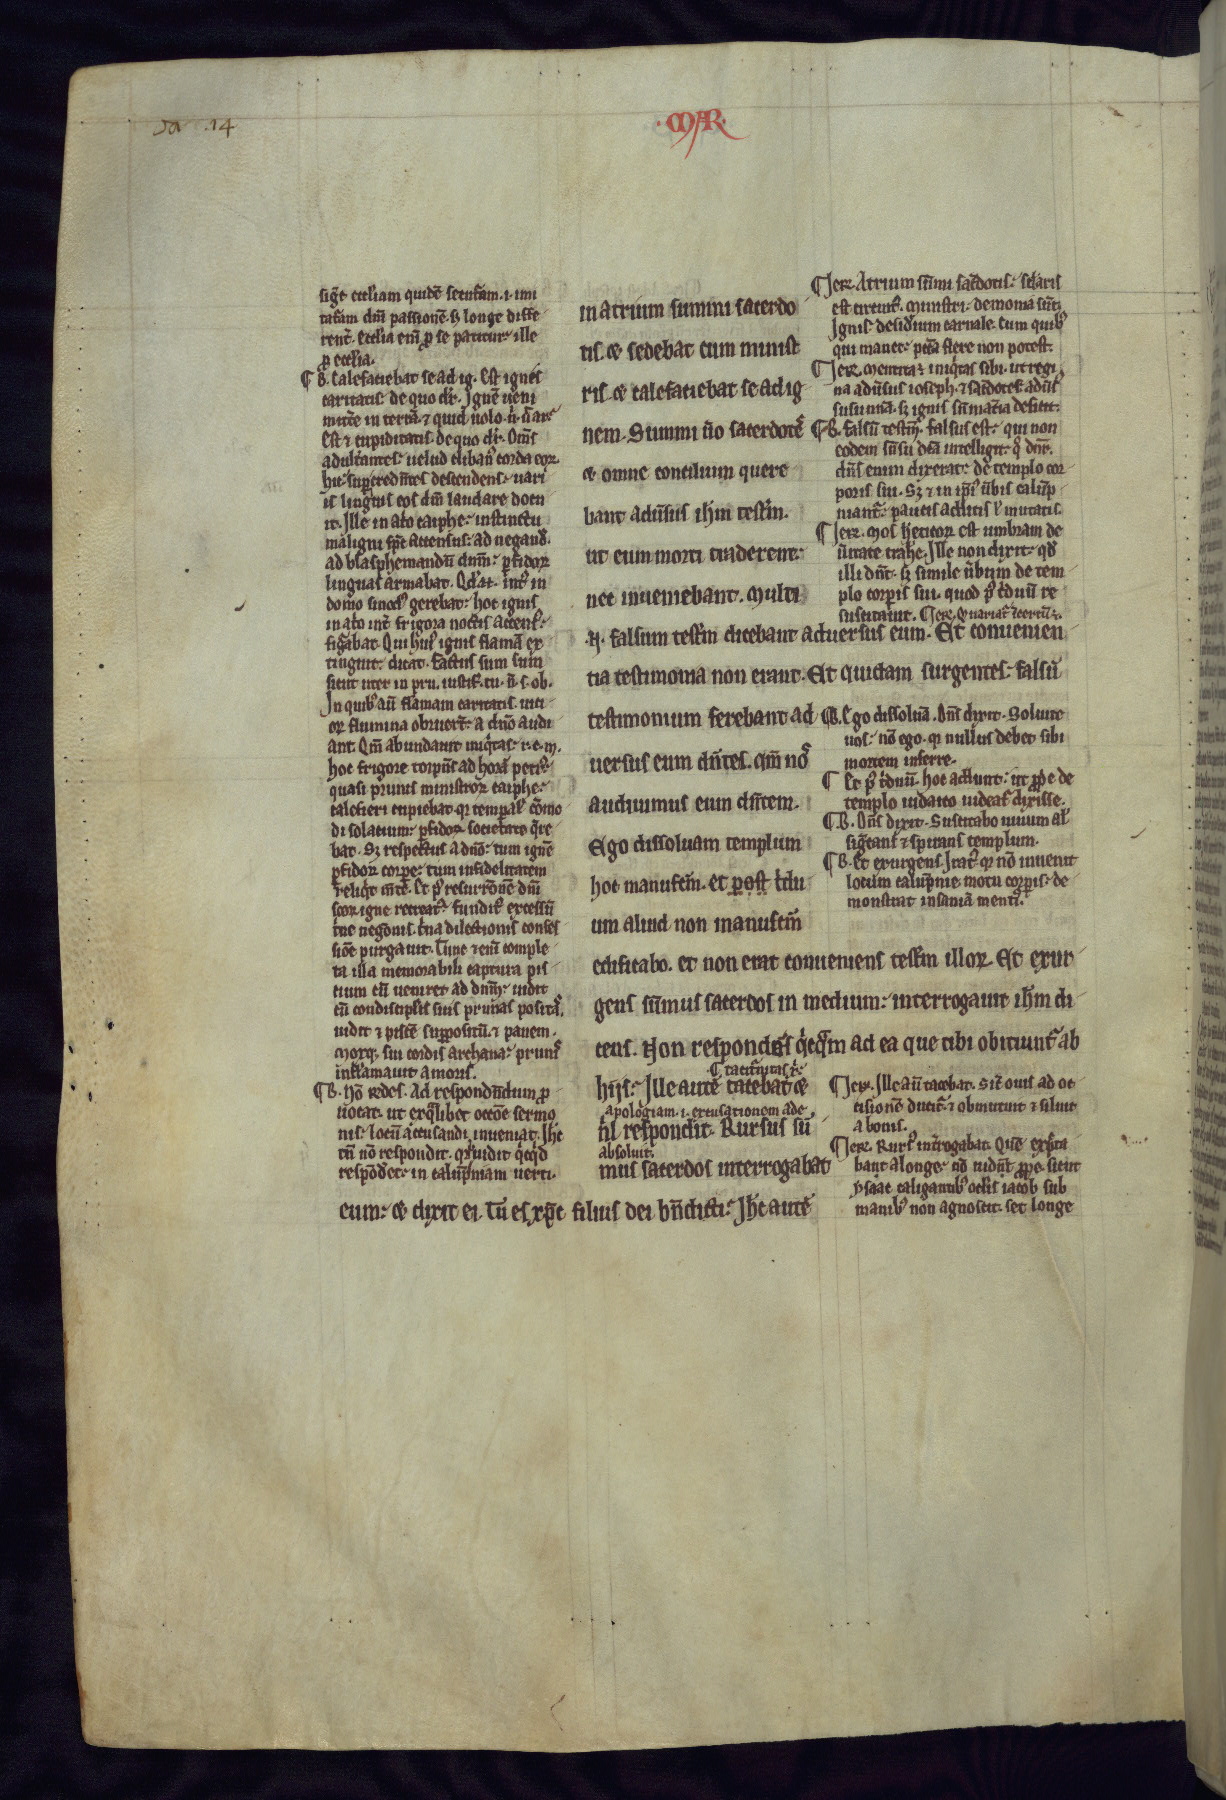 .14
· MAR ·
siḡt eccl̄iam quidē secutam. i. imi
tatam dn̄i passionē. sꝫ longe diffe
rent̄. Eccl̄ia eni ꝓ se patitur: ille
ꝓ eccl̄ia.
¶ B. Calefaciebat se ad ig. Est ignis
caritatis de quo dr̄. Ignē ueni
mitte̅ in terrā. ⁊ quid uolo n̄. ar̄.
Est ⁊ cupiditatis. de quo dr̄. Om̄s
adulterantes: uelud clibanꝰ corda eoꝝ.
Hic superced̄ntes descendens: uari
is linguis eos dm̄ laudare docu
it. Ille in at̄o caiphe: instinctu
maligni sp̄c accensus: ad negand̄.
ad blasphemandū dnm̄: ꝑfidoꝝ
linguas armabat. Qd̄ at̄. intꝰ in
domo gerebat: hoc ignis
in at̄o int̄ frigora noctis accensꝰ:
figᵃbat. Qui huiꝰ ignis flamā ex
tinguit: dicat. Factus sum sicut
sicut uter in pru. iustif. tu. n̄. s. ob.
In quibꝰ aū flamam caritatis. uici
oꝝ flumina obruert̄: a dn̄o audi
ant. Qm̄ abundauit iniq̄tas: r. c. m.
hoc frigore torpūs ad horā petrꝰ:
quasi prunis ministroꝝ caiphe:
calefieri cupiebat. qꝛ tempalꝰ cōmo
di solatium: ꝑfidoꝝ societate q̄re
bat. Sꝫ respectus a dn̄o: tum ignē
ꝑfidoꝝ corpe: tum infidelitatem
relīqt m̄te. Et ꝑ resurrōnē dn̄i
scōꝝ igne recreatꝰ: fundit̄ excessū
t̄ne negōnis. t̄na dilectionis confes
siōe purgauit. Tunc ⁊ eni comple
ta illa memorabili captura pis
cium cū ueniret ad dnm̄: uidit
cū condiscipl̄is suis prunas positas.
uidit ⁊ piscē supꝑositū. ⁊ panem.
Moxqꝫ sui cordis archana: prunis
inflāmauit amoris.
¶ B. Nō uides. Ad respondendum ꝓ
uocat. ut ex q̄libet occōe sermo
nis: locū accusandi inueniat. Ihc
tn̄ nō respondit. qꝛ uidit q̄cq̄d
respōdet̄: in calupniam uerti.
in atrium summi sacerdo
tis. ⁊ sedebat cum minist
ris. ⁊ calefaciebat se ad ig
nem. Summi u̅o sacerdotes
⁊ omne concilium quere
bant adu̅sus ihm̄ testm̄.
ut eum morti traderent:
nec inueniebant. Multi
.N. falsum testm̄ dicebant aduersus eum. Et conuenien
tia testimonia non erant. Et quidam surgentes: falsū
testimonium ferebant ad
uersus eum dn̄tes. qm̄ nos
audiuimus eum dn̄tem.
Ego dissoluam templum
hoc manufcm̄. et post tͥdu
um aliud non manufcm̄
edificabo. et non erat conueniens testm̄ illoꝝ. Et exur
gens sūmus sacerdos in medium: interrogauit ihm̄ di
cens. Non respondes q̄cq̄m ad ea que tibi obiciunt̄ ab
¶ taciturnitas xp̄i.
hijs: Ille autē tacebat ⁊
apologiam. i. excusationem a de
nil respondit. Rursus sū
absoluit.
mus sacerdos interrogabat
eum: ⁊ dixit ei. Tu es xp̄c filius dei bn̄dicti: Ihc autē
¶ Jer. Atrium sūmi sac̄dotis: sc̄laris
est circuitꝰ. Ministri: demonia sūt.
Ignis: desid̄ium carnale. Cum quibꝰ
qui manet: pctā flere non potest.
¶ Jer. Mentita ē iniq̄tas sibi. ut regi
na adu̅sus ioseph. ⁊ sac̄dotes adu̅s
susannā. sꝫ ignis sn̄ mat̄ia deficit.
¶ B. Falsū testm̄. Falsus est: qui non
eodem sn̄su dc̄a intelligit: q̊ dn̄r.
dn̄s enim dixerat: de templo cor
poris sui. Sꝫ ⁊ in ip̄is u̅bis calūp
niant̄: paucis additis ꝉ mutatis.
¶ Jer. Mos hereticoꝝ est umbram de
u̅itate trahe̅. Ille non dixit: qd̄
illi dn̄t. sꝫ simile u̅bum de tem
plo corꝑis sui. quod ꝑ tͥduū re
suscitauit.
¶ B. Ego dissoluā. Dn̄s dixit. Soluite
uos: nō ego. qꝛ nullus debet sibi
mortem inferre.
¶ Et ꝑ tͥduū. hoc addunt: ut ꝓprie de
templo iudaico uideat̄ dixisse.
¶ B. Dn̄s dixit. Suscitabo uiuum al̄
siḡcans ⁊ spirans templum.
¶ B. Et exurgens. Iratꝰ qꝛ nō inuenit
locum calūpnie. motu corꝑis: de
monstrat insaniā mentis.
¶ Jer. Ille aū tacebat. Sic̄ ouis ad oc
cisionē ducit̄: ⁊ obmutuit ⁊ siluit
a bonis.
¶ Jer. Rursꝰ int̄rogabat. Quē expc̄ta
bant a longe: nō uidn̄t ꝓpe. sicut
ysaac caligantibꝰ oclīs iacob sub
manibꝰ non agnoscit: set longe